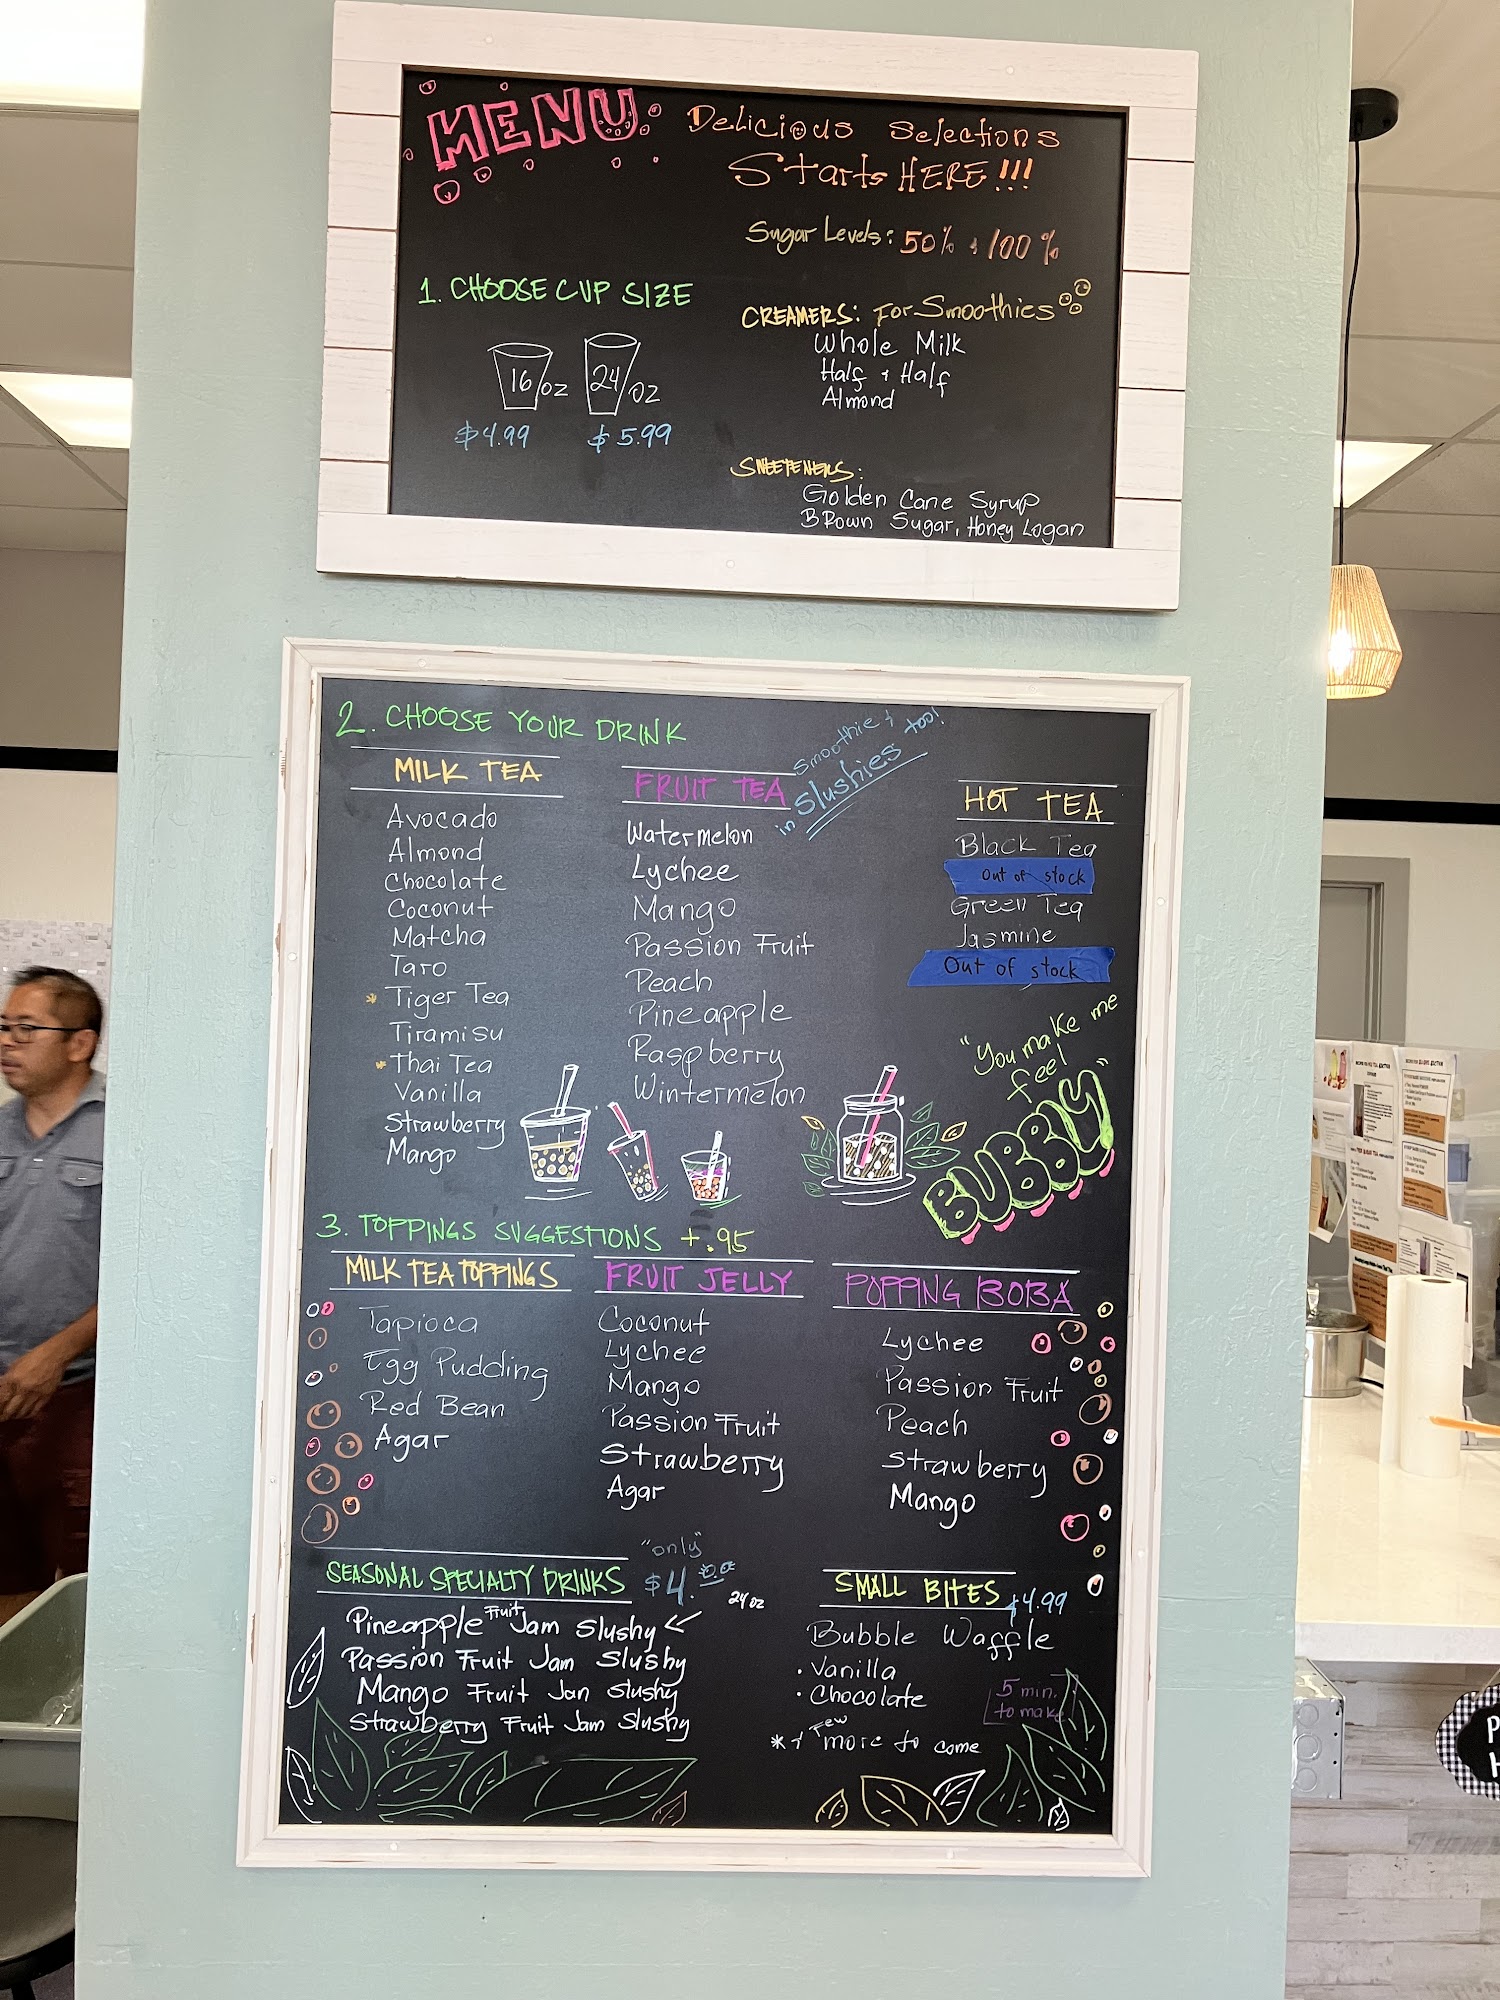 MENU
Delicious Selections
Starts HERE!!!
Sugar Levels: 50% & 100%
1. CHOOSE CUP SIZE
16/oz 24/oz
$4.99 $5.99
CREAMERS: For Smoothies
Whole Milk
Half & Half
Almond
SWEETENERS:
Golden Cane Syrup
BRown Sugar, Honey Logan
2. CHOOSE YOUR DRINK
MILK TEA
Avocado
Almond
Chocolate
Coconut
Matcha
Taro
* Tiger Tea
Tiramisu
* Thai Tea
Vanilla
Strawberry
Mango
FRUIT TEA
in Smoothie &
Slushies too!
Watermelon
Lychee
Mango
Passion Fruit
Peach
Pineapple
Raspberry
Wintermelon
HOT TEA
Black Tea
Out of stock
Green Tea
Jasmine
Out of stock
"You make me
feel
BUBBLY"
3. TOPPINGS SUGGESTIONS +.95
MILK TEA TOPPINGS
Tapioca
Egg Pudding
Red Bean
Agar
FRUIT JELLY
Coconut
Lychee
Mango
Passion Fruit
Strawberry
Agar
POPPING BOBA
Lychee
Passion Fruit
Peach
Strawberry
Mango
SEASONAL SPECIALTY DRINKS
"only"
$4.00
24oz
Pineapple Fruit Jam Slushy
Passion Fruit Jam Slushy
Mango Fruit Jam Slushy
Strawberry Fruit Jam Slushy
SMALL BITES $4.99
Bubble Waffle
• Vanilla
• Chocolate
5 min.
to make
* + Few more to come